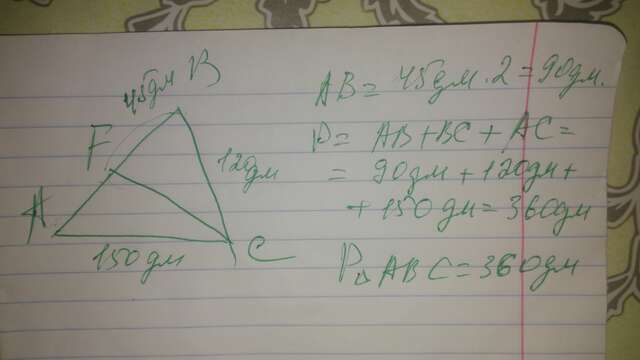 AB = 45дм · 2 = 90дм.
P = AB + BC + AC =
= 90дм + 120дм +
+ 150 дм = 360дм
P△ABC = 360дм
45дм
B
120дм
F
C
A
150 дм